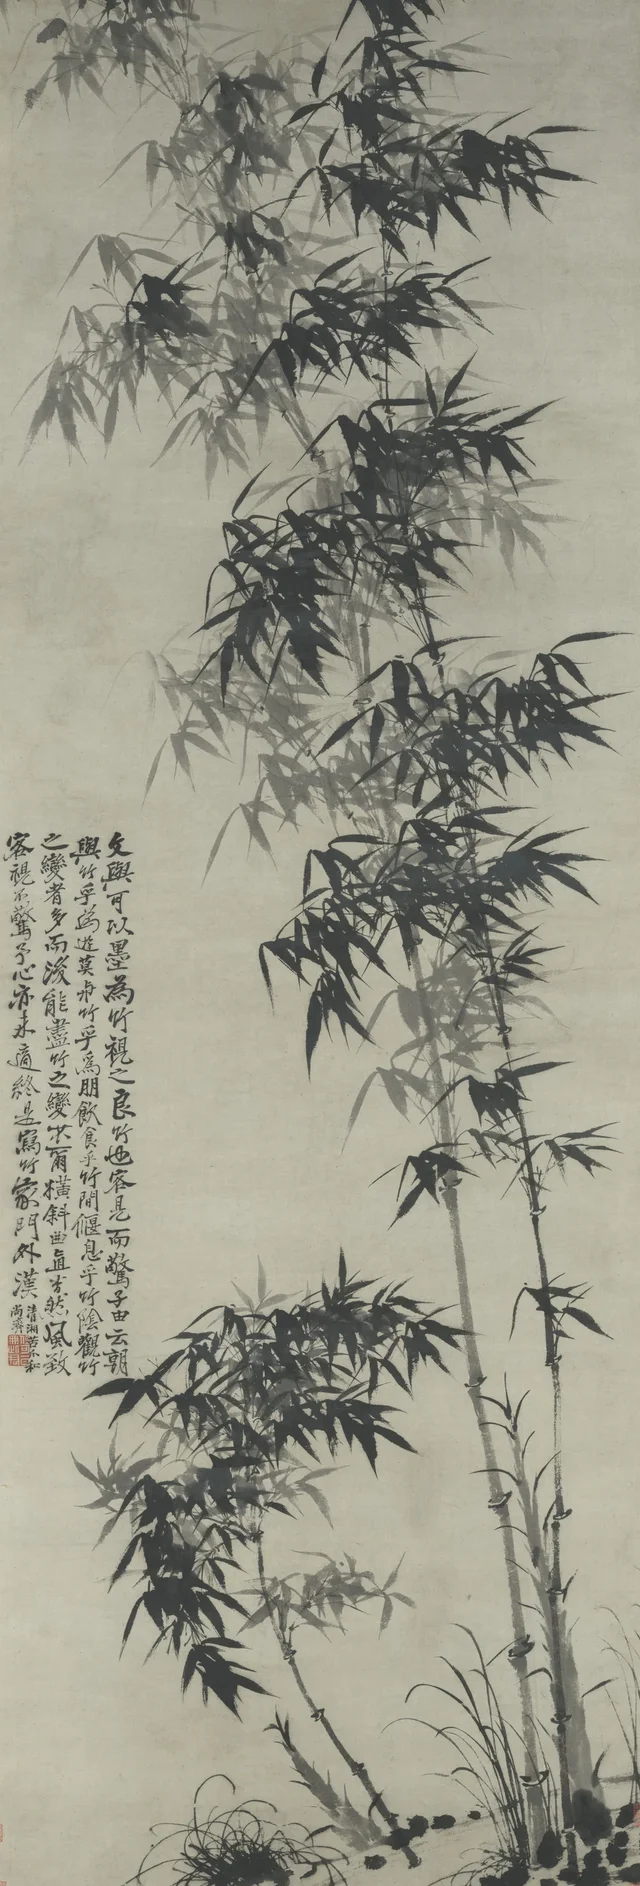 文與可以墨為竹視之良竹也客見而驚子由云朝
與竹乎為遊莫與竹乎為朋飲食乎竹間偃息乎竹陰觀竹
之變者多而後能盡竹之變宋爾橫斜曲直芳然風致
客視不驚予心亦未適終是寫竹家門外漢
清湘苦瓜和
尚濟